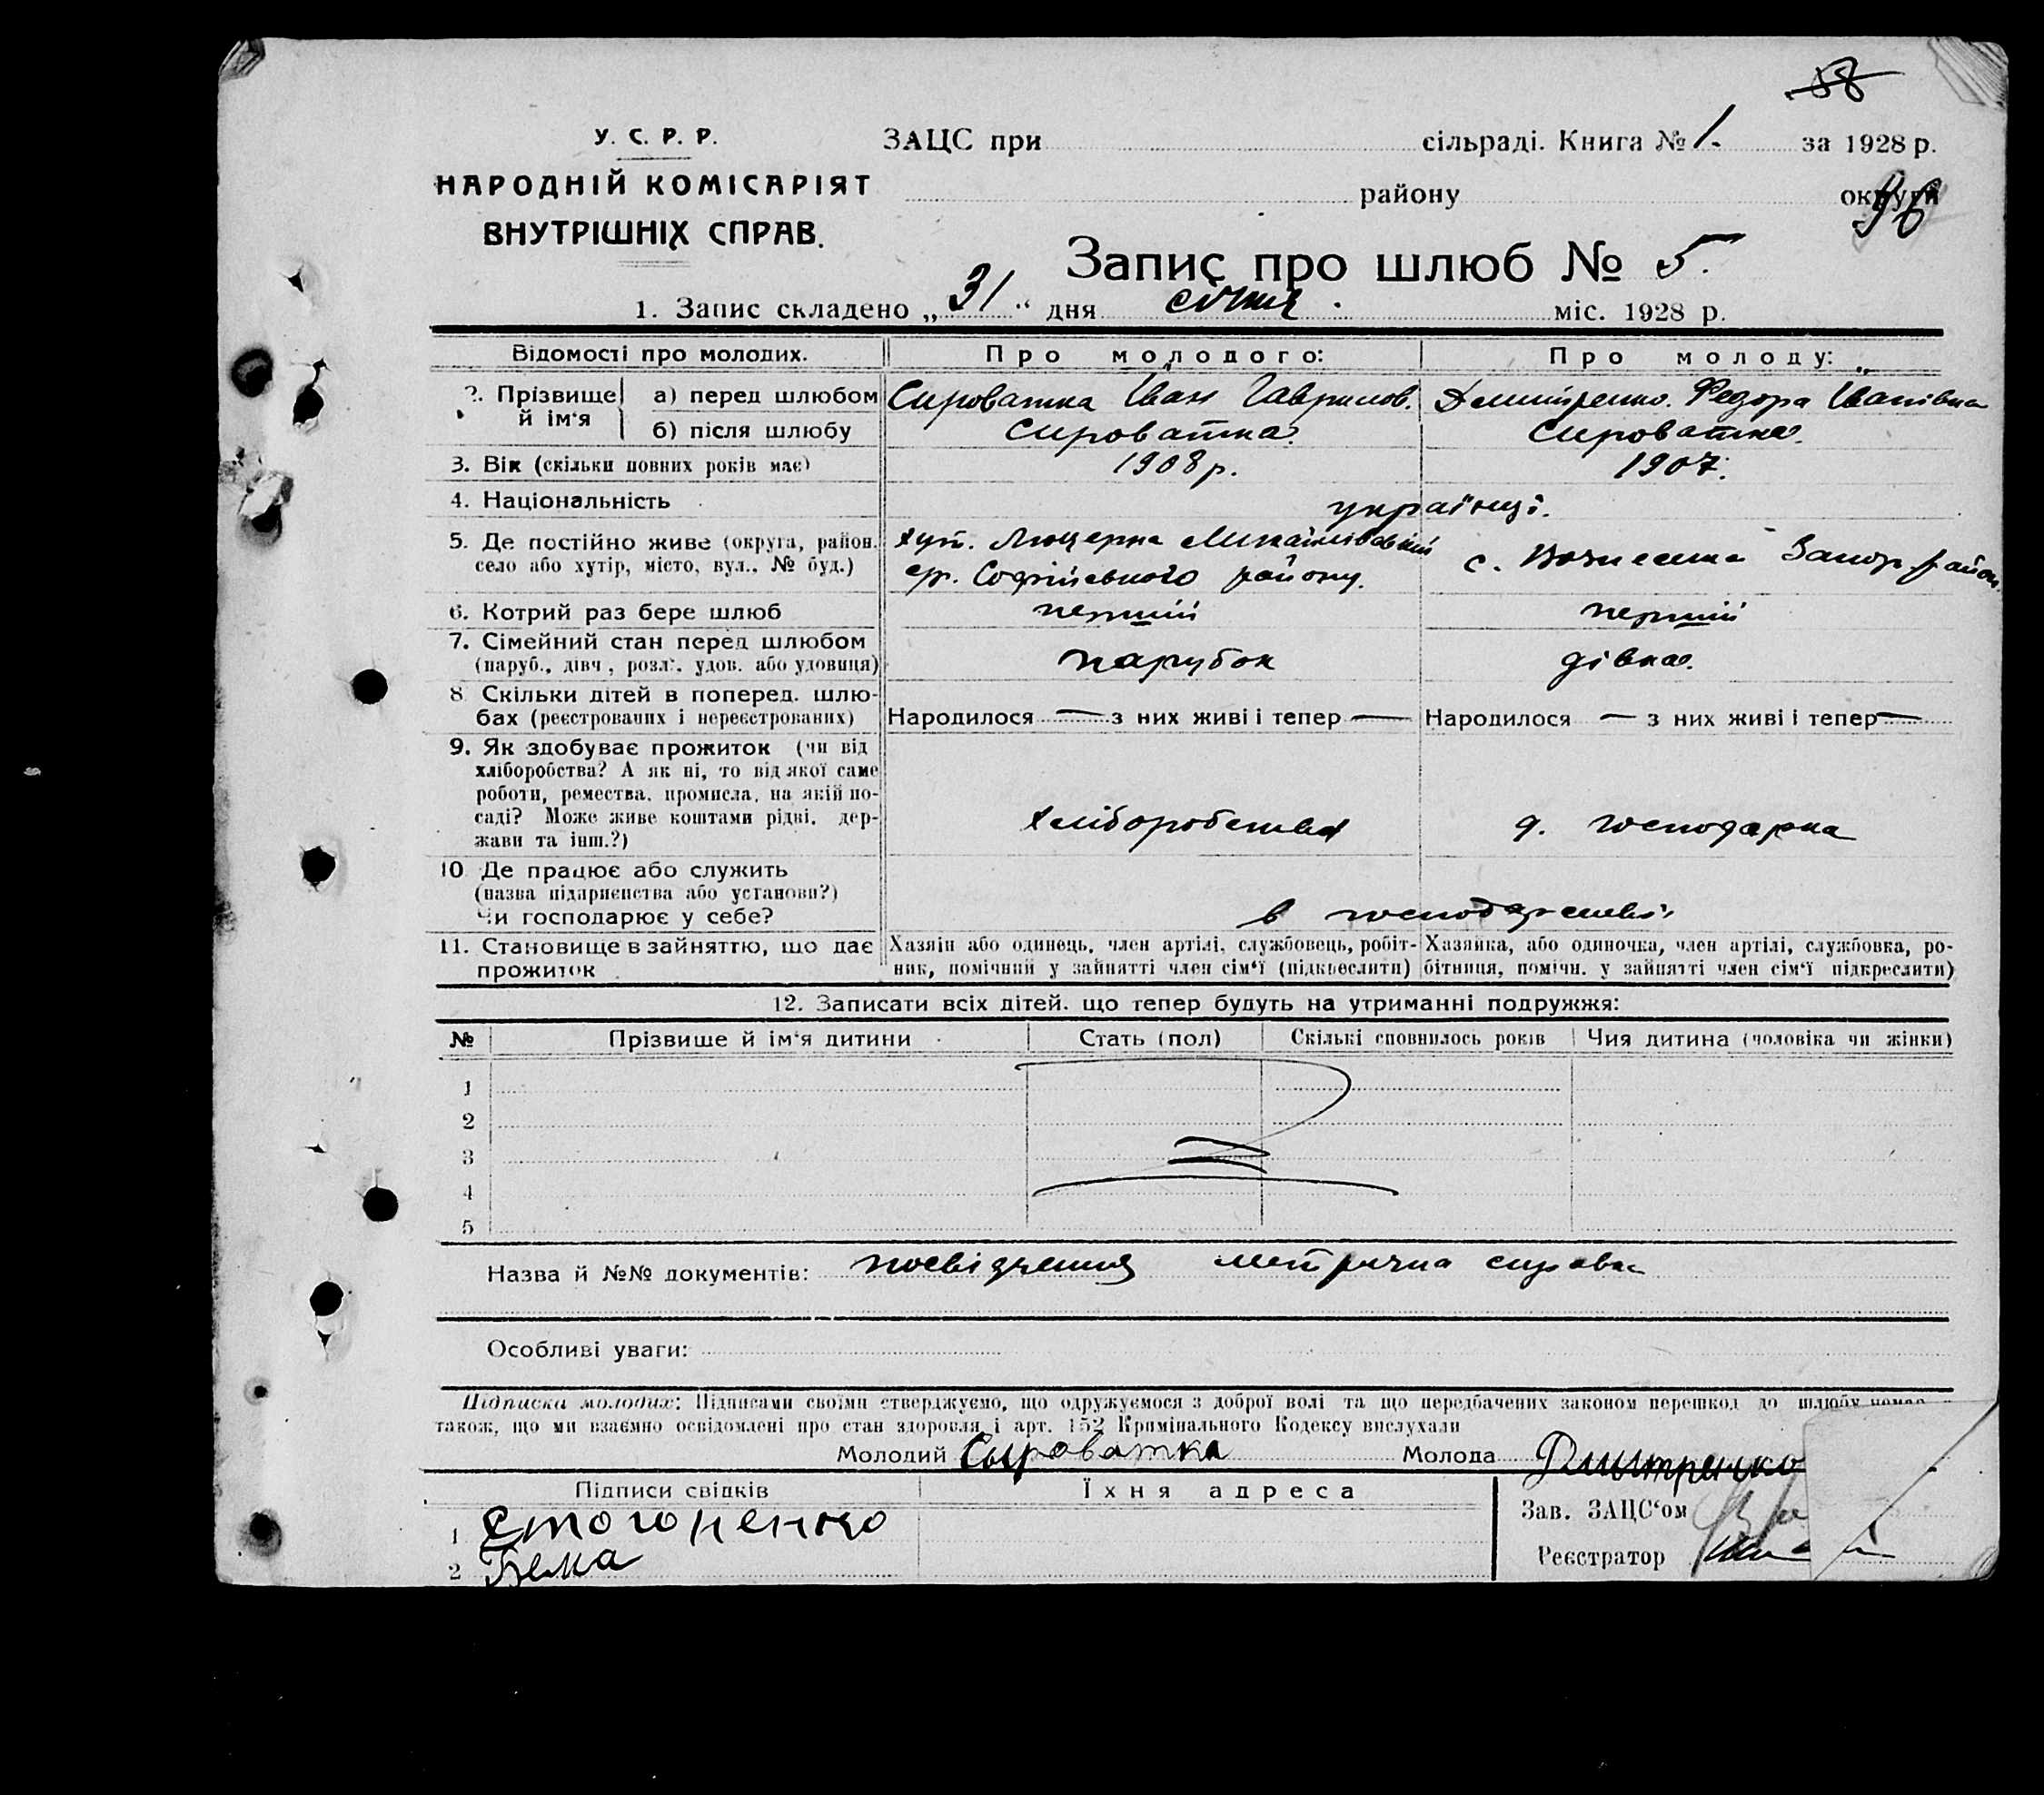 58
У. С. Р. Р.
НАРОДНІЙ КОМІСАРІЯТ
ВНУТРІШНІХ СПРАВ.
ЗАЦС при сільраді. Книга № 1. за 1928 р.
району округи
96
Запис про шлюб № 5.
1. Запис складено „31“ дня січня міс. 1928 р.
Відомості про молодих. Про молодого: Про молоду:
2. Прізвище й ім'я а) перед шлюбом Сироватка Іван Гаврилов. Дмитренко Федора Іванівна
б) після шлюбу Сироватка Сироватка
3. Вік (скільки повних років має) 1908 р. 1907.
4. Національність українці.
5. Де постійно живе (округа, район, хут. Люцерна Михайлівській
село або хутір, місто, вул., № буд.) ср. Софіївського району. с. Вознесенка Запор. район
6. Котрий раз бере шлюб перший перший
7. Сімейний стан перед шлюбом
(паруб., дівч., розл., удов. або удовиця) парубок дівка.
8 Скільки дітей в поперед. шлю-
бах (реєстрованих і нереєстрованих) Народилося — з них живі і тепер — Народилося — з них живі і тепер —
9. Як здобуває прожиток (чи від
хліборобства? А як ні, то від якої саме
роботи, ремества, промисла, на якій по-
саді? Може живе коштами рідні, дер- хліборобства д. господарка
жави та інш.?)
10 Де працює або служить
(назва підприємства або установи?)
Чи господарює у себе? в господарстві
11. Становище в зайняттю, що дає Хазяїн або одинець, член артілі, службовець, робіт- Хазяйка, або одиночка, член артілі, службовка, ро-
прожиток ник, помічний у зайнятті член сім‘ї (підкреслити) бітниця, помічн. у зайнятті член сім‘ї підкреслити)
12. Записати всіх дітей, що тепер будуть на утриманні подружжя:
№ Прізвише й ім‘я дитини Стать (пол) Скількі сповнилось років Чия дитина (чоловіка чи жінки)
1
2
3
4
5
Назва й №№ документів: посвідчення метрична справа
Особливі уваги:
Підписка молодих: Підписами своїми стверджуємо, що одружуємося з доброї волі та що передбачених законом перешкод до шлюбу немає
також, що ми взаємно освідомлені про стан здоровля і арт. 152 Кримінального Кодексу вислухали
Молодий Сыроватка Молода Дмитренко
Підписи свідків Їхня адреса
Зав. ЗАЦС‘ом
1 Стогоненко
Реєстратор
2 Бема